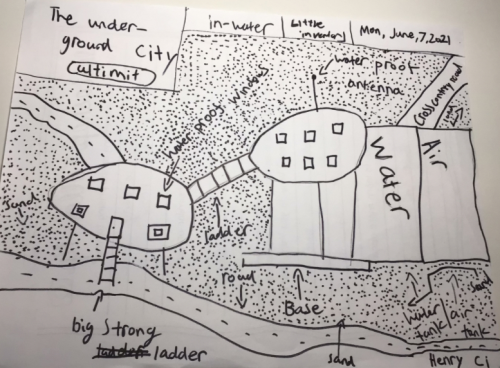 The under-
ground City
Cultimit
in-water
Little
inventors
Mon, June, 7, 2021
water proof
antenna
Cross country road
water proof windows
Water
Air
sand
ladder
road
Base
sand
water
tank
air
tank
big Strong
ladder
sand
Henry Ci